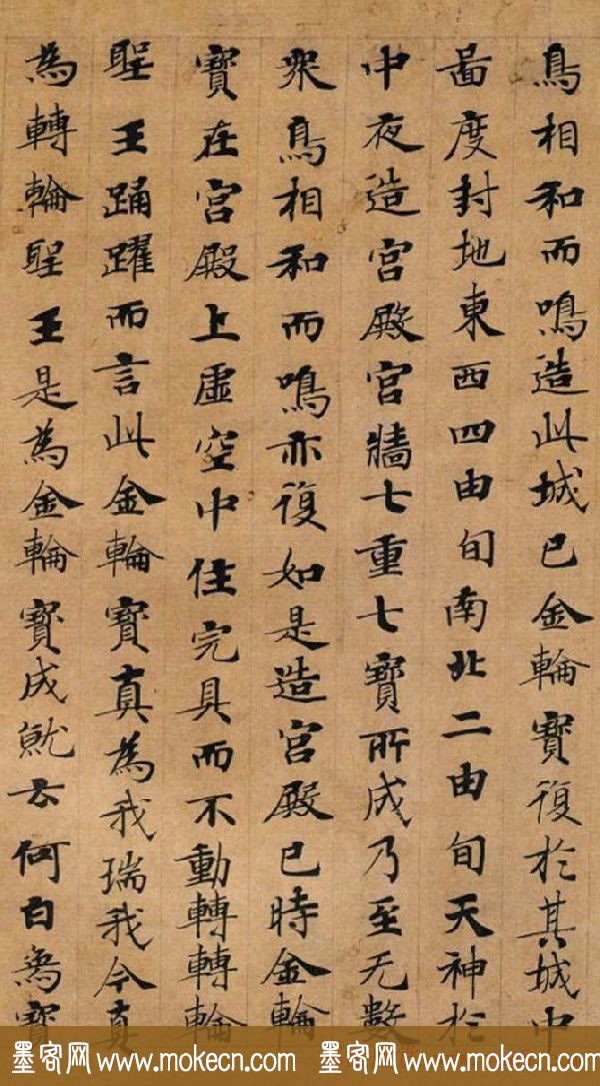 鳥相和而鳴造此城已金輪寶復於其城中
啚度封地東西四由旬南北二由旬天神於
中夜造宮殿宮牆七重七寶所成乃至无數
眾鳥相和而鳴亦復如是造宮殿已時金輪
寶在宮殿上虛空中住完具而不動轉轉輪
聖王踊躍而言此金輪寶真為我瑞我今真
為轉輪聖王是為金輪寶成就云何白為寶
墨客网 www.mokecn.com 墨客网 www.mokecn.com